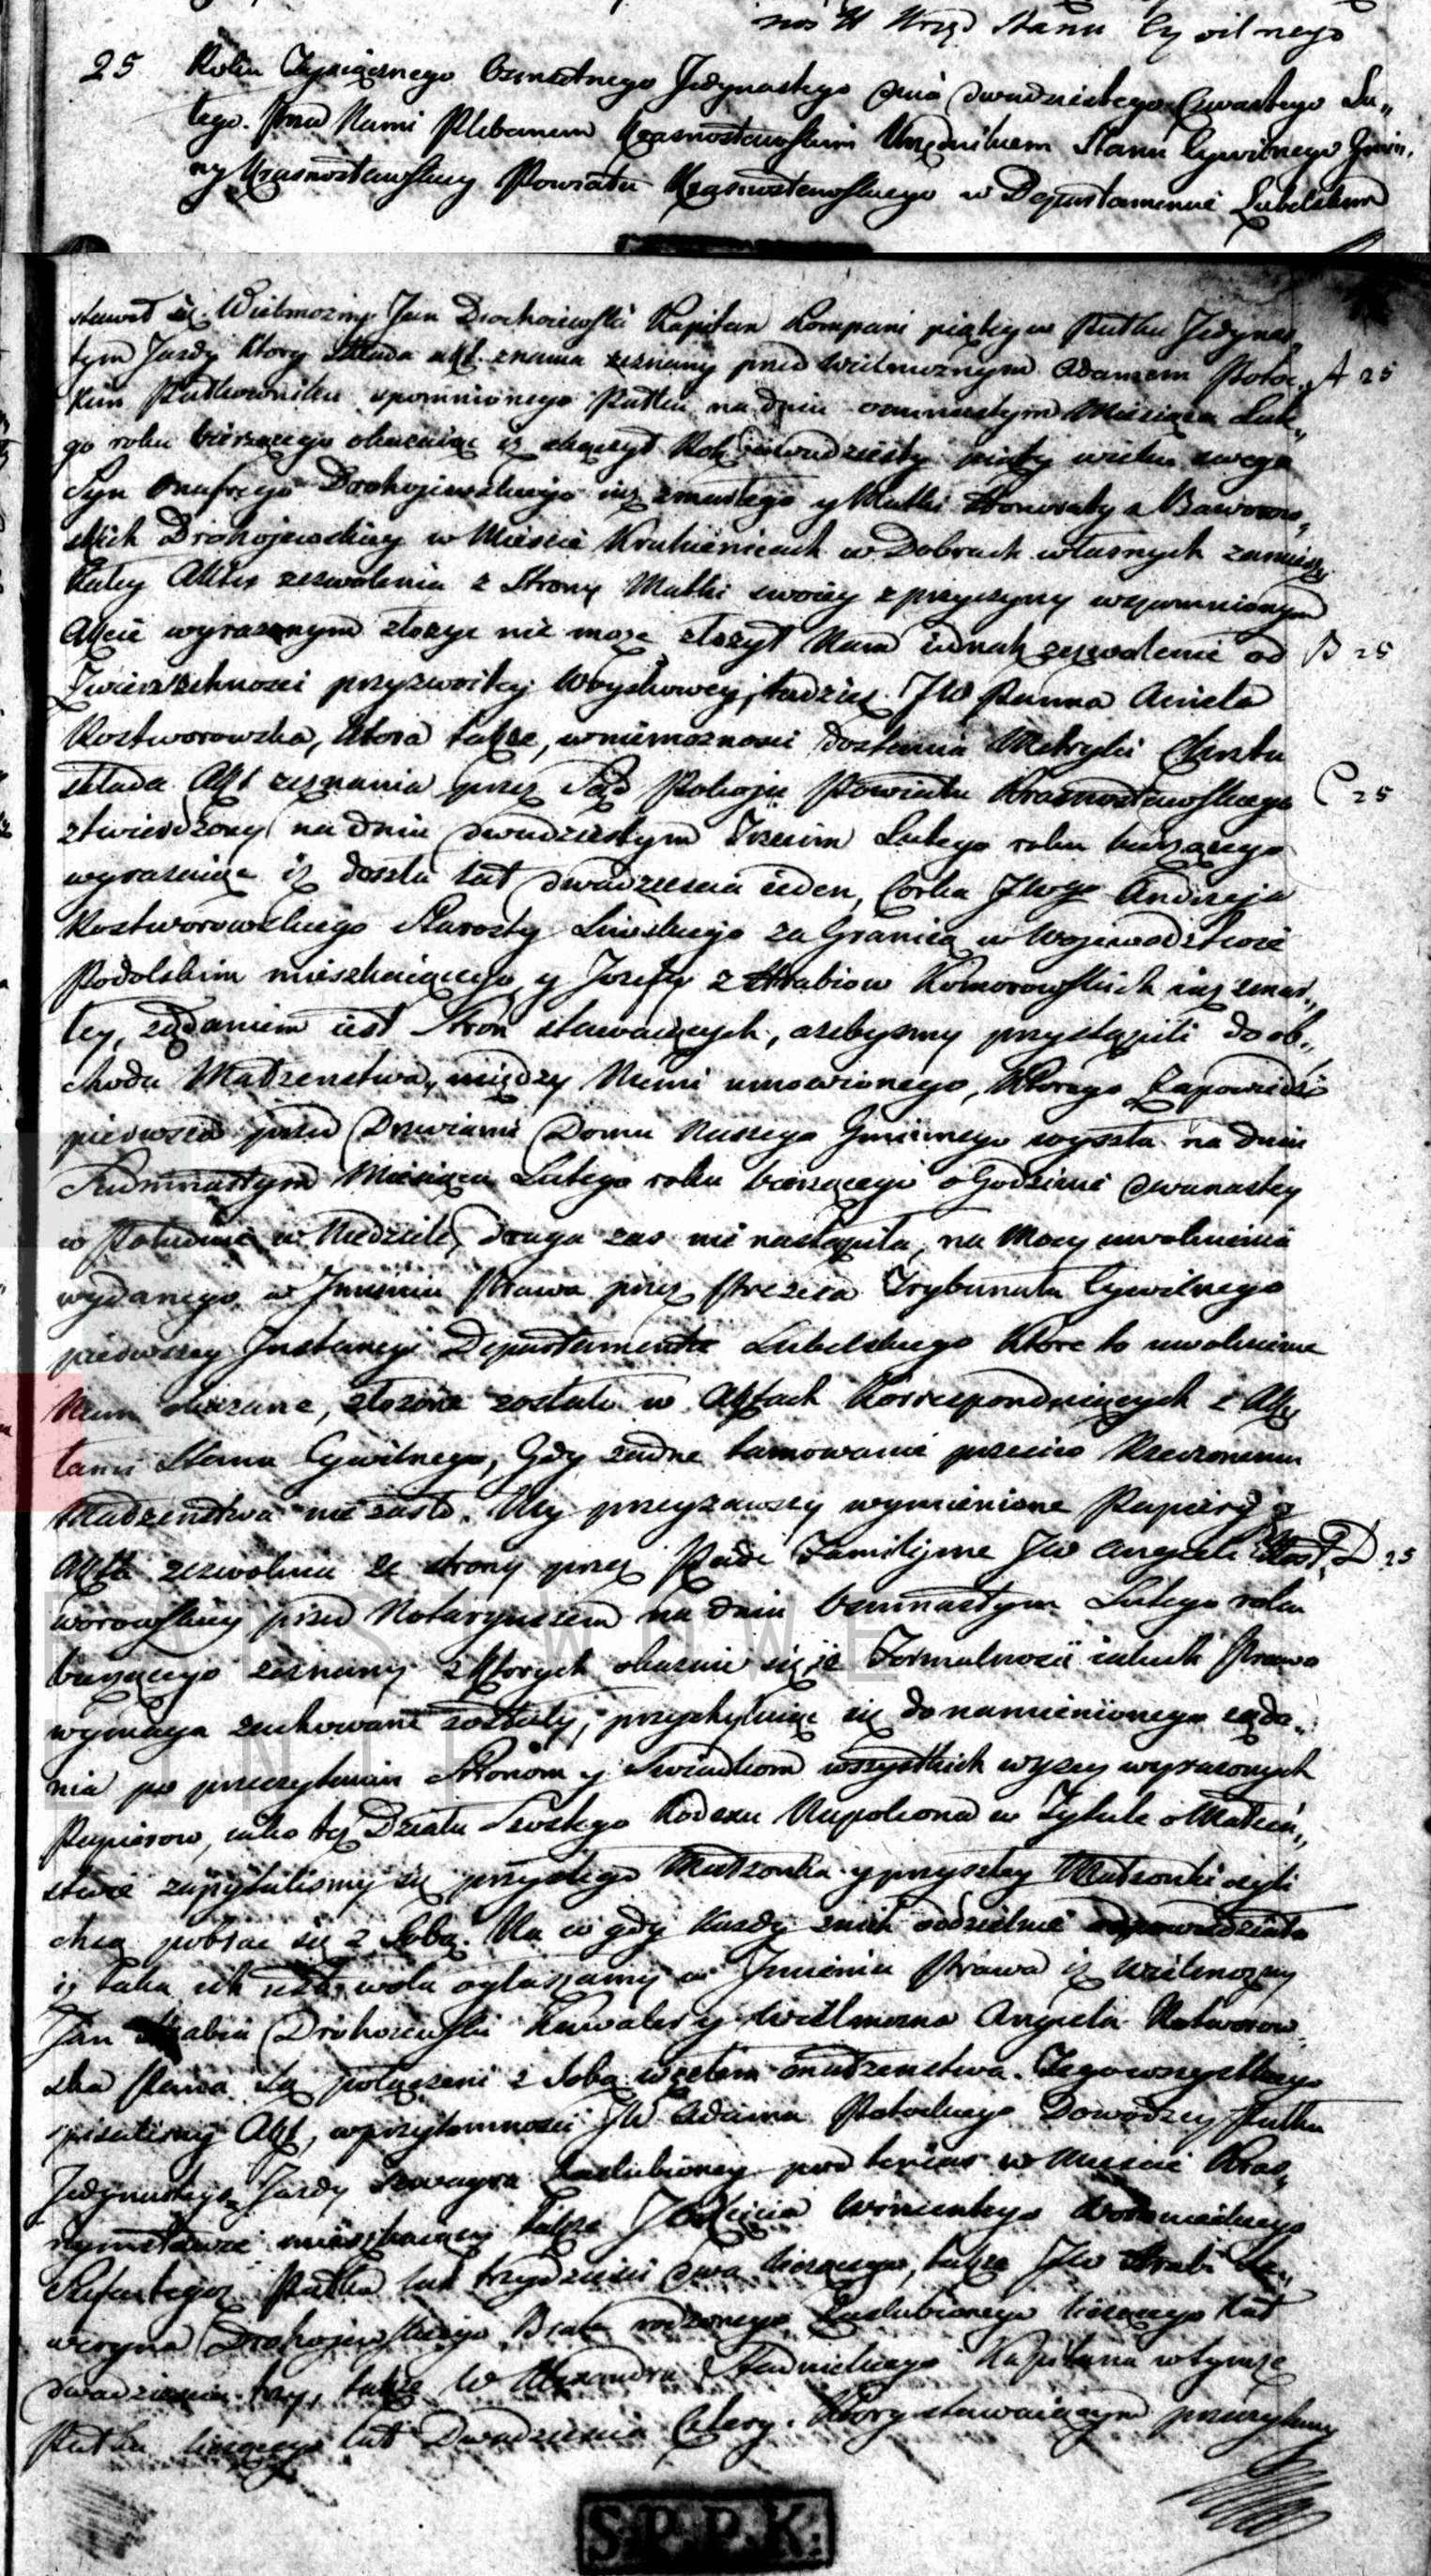 nos U Urząd Stanu Cywilnego
25 Roku Tysiącznego Osmsetnego Jedynastego dnia dwudziestego Czwartego Lu„
tego. Przed Nami Plebanem Krasnostawskim Urzędnikiem Stanu Cywilnego Gmi„
ny Krasnostawskiey Powiatu Krasnostawskiego w Departamencie Lubelskim
stawił się Wielmożny Jan Drohoiewski Kapitan Kompani piątey w Pułku Jedynas„
tym Jazdy ktory składa akt znania zeznany przed Wielmożnym Adamem Potoc„ A 25
kim Pułkownikiem wpomnionego Pułku na dniu osmnastym Miesiąca Lute„
go roku bieżącego okazuiąc iż skączył Rok dwudziesty piąty wieku swego
Syn Onufrego Drohojewskiego iuż zmarłego y Matki Honoraty z Baworow„
skich Drohojewskiey w Mieście Krukienicach w Dobrach własnych zamiesz
kałey Aktu zezwolenia z Strony Matki swoiey z przyczyny wspomnionym
Akcie wyrażonym złożyć nie może złożył Nam iednak zezwolenie od B 25
Zwierzchności przyzwoitey Woyskowey, tudzież JW Panna Aniela
Rostworowska, ktora także, w niemożności dostania Metryki Chrztu
składa Akt zeznania przez Sąd Pokoju Powiatu Krasnostawskiego C 25
ztwierdzony na dniu dwudziestym Trzecim Lutego roku bieżącego
wyrażaiące iż doszła lat dwadzieścia ieden, Corka JWgo Andrzeja
Rostworowskiego Starosty Liwskiego za Granicą w Wojewodztwie
Podolskim mieszkaiącego y Jozefy z Hrabiow Komorowskich iuż zmar„
łey, żądaniem iest Stron stawaiących, ażebysmy przystąpili do ob„
chodu Małżenstwa, między Niemi umowionego, ktorego Zapowiedź
pierwsza przed Drzwiami Domu Naszego Gminnego wyszła na dniu
Siedmnastym Miesiąca Lutego roku bieżącego o Godzinie dwunastey
w Południe w Niedzielę, druga zas nie nastąpiła, na Mocy uwolnienia
wydanego w Imieniu Prawa przez Prezesa Trybunału Cywilnego
pierwszey Instancyi Departamentu Lubelskiego ktore to uwolnienie
Nam okazane, złożone zostało w Aktach korrespondujących z Ak„
tami Stanu Cywilnego, Gdy żadne tamowanie przeciw Rzeczonemu
Małżenstwu nie zaszło. My przeyrzawszy wymienione Papiery y
Akta zezwolenia ze strony przez Radę Familijną JW Angeli Rost„ D 25
worowskiey przed Notaryuszem na dniu Osmnastym Lutego roku
bieżącego zeznany z ktorych okazuie się iż Formalności iakich Prawo
wymaga zachowane zostały, przychylaiąc się do namienionego żąda„
nia po przeczytaniu Stronom y Swiadkom wszystkich wyżey wyrażonych
Papierow, iako też Działu Szostego Kodexu Napoleona w Tytule o Małżeń„
stwie zapytalismy się przyszłego Małżonka y przyszłey Małżonki czyli
chcą pobrać się z Sobą. Na co gdy każdy znich oddzielnie odpowiedziało
iż taka ich iest wola ogłaszamy w Imieniu Prawa iż Wielmożny
Jan Hrabia Drohoiewski Kawaler y Wielmożna Angela Rotworow„
ska Panna są połączeni z Sobą węzłem małżenstwa. Czego wszystkiego
spisalismy Akt, w przytomności JW Adama Potockiego Dowodzcy Pułku
Jedynastego Jazdy Szwagra Zaslubioney pod tenczas w Miescie Kras„
nymstawie mieszkaiącego także Wincentego
Szefa tegoż Pułku lat trzydziesci dwa liczącego, także JW Hrabi Se„
weryna Drohojewskiego Brata rodzonego Zaslubionego liczącego lat
dwadziescia trzy, także W Alexandra Stadnickiego Kapitana w tymże
Pułku liczącego lat Dwadziescia Cztery. Ktory stawaiącym przeczytany
S.P.P.K.